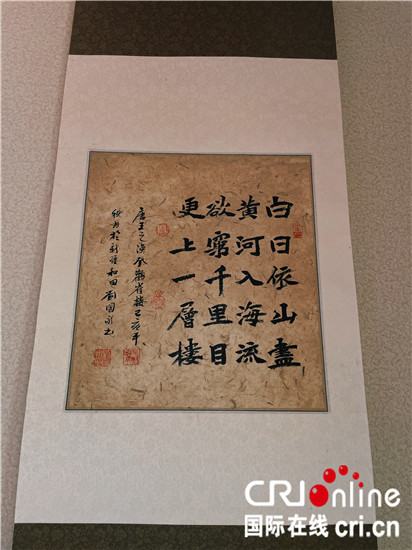 白日依山盡
黄河入海流
欲窮千里目
更上一層樓
唐王之渙登鸛雀樓己亥年
秋月於新疆和田劉國
CRIonline
国际在线 cri.cn